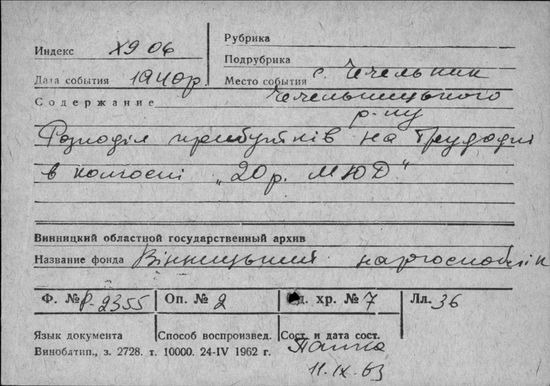 Индекс Х906
Рубрика
Подрубрика
Дата события 1940р.
Место события с. Чечельник
Чечельницького
р-ну
Содержание
Розподіл прибутків на трудодні
в колгоспі „20 р. МЮД."
Винницкий областной государственный архив
Название фонда Вінницький
Ф. № Р-2355 Оп. № 2 Ед. хр. № 7 Лл. 36
Язык документа Способ воспроизвед. Сост. и дата сост.
Винобатип., з. 2728. т. 10000. 24-IV 1962 г.
11.IX.63